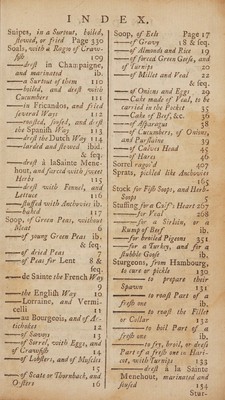 INDEX.
Snipes, in a Surtout, boiled,
stewed, or fried Page 330
Soals, with a Ragou of Craw-
fish 109
—drest in Champaigne,
and marinated ib.
—a Surtout of them 110
—boiled, and drest with
Cucumbers 111
—in Fricandos, and fried
several Ways 112
—roasted, sensed, and drest
the Spanish Way 113
—drest the Dutch Way 114
—larded and stewed ibid.
& seq.
—drest à laSainte Mene-
hout, and farced with sweet
Herbs 115
—drest with Fennel, and
Lettuce 116
—stuffed with Anchovies ib.
—baked 117
Soop, of Green Peas, without
Meat 6
—of young Green Peas ib.
& seq.
—of dried Peas 7
—of Peas for Lent 8 &
seq.
—de Sainte the French Way
9
—the English Way 10
—Lorraine, and Vermi-
celli 11
—au Bourgeois, and of Ar-
tichokes 12
—of Savoys 13
—of Sorrel, with Eggs, and
of Crawfish 14
—of Lobsters, and of Muscles
15
—of Scate or Thornback, and
Oisters 16
Soop, of Eels Page 17
—of Gravy 18 & seq.
—of Almonds and Rice 19
—of forced Green Geese, and
of Turnips 20
—of Millet and Veal 22
& seq.
—of Onions and Eggs 29
—Cake made of Veal, to be
carried in the Pocket 35
—Cake of Beef, &c. 36
—of Asparagus 38
—of Cucumbers, of Onions,
and Purslaine 39
—of Calves Head 45
—of Hares 46
Sorrel ragou'd 407
Sprats, pickled like Anchovies
165
Stock for Fish Soops, and Herb-
Soops 5
Stuffing for a Calf's Heart 207
—for Veal 208
—for a Sirloin, or a
Rump of Beef ib.
—for broiled Pigeons 351
—for a Turkey, and for a
Bubble Goose ib.
Sturgeons, from Hambourg,
to cure or pickle 130
—to prepare their
Spawn 131
—to roast Part of a
fresh one ib.
—to roast the Fillet
or Collar 132
—to boil Part of a
fresh one ib.
—to fry, broil, or dress
Part of a fresh one in Hari-
cot, with Turnips 133
—drest à la Sainte
Menehout, marinated and
sensed 134
Stur-